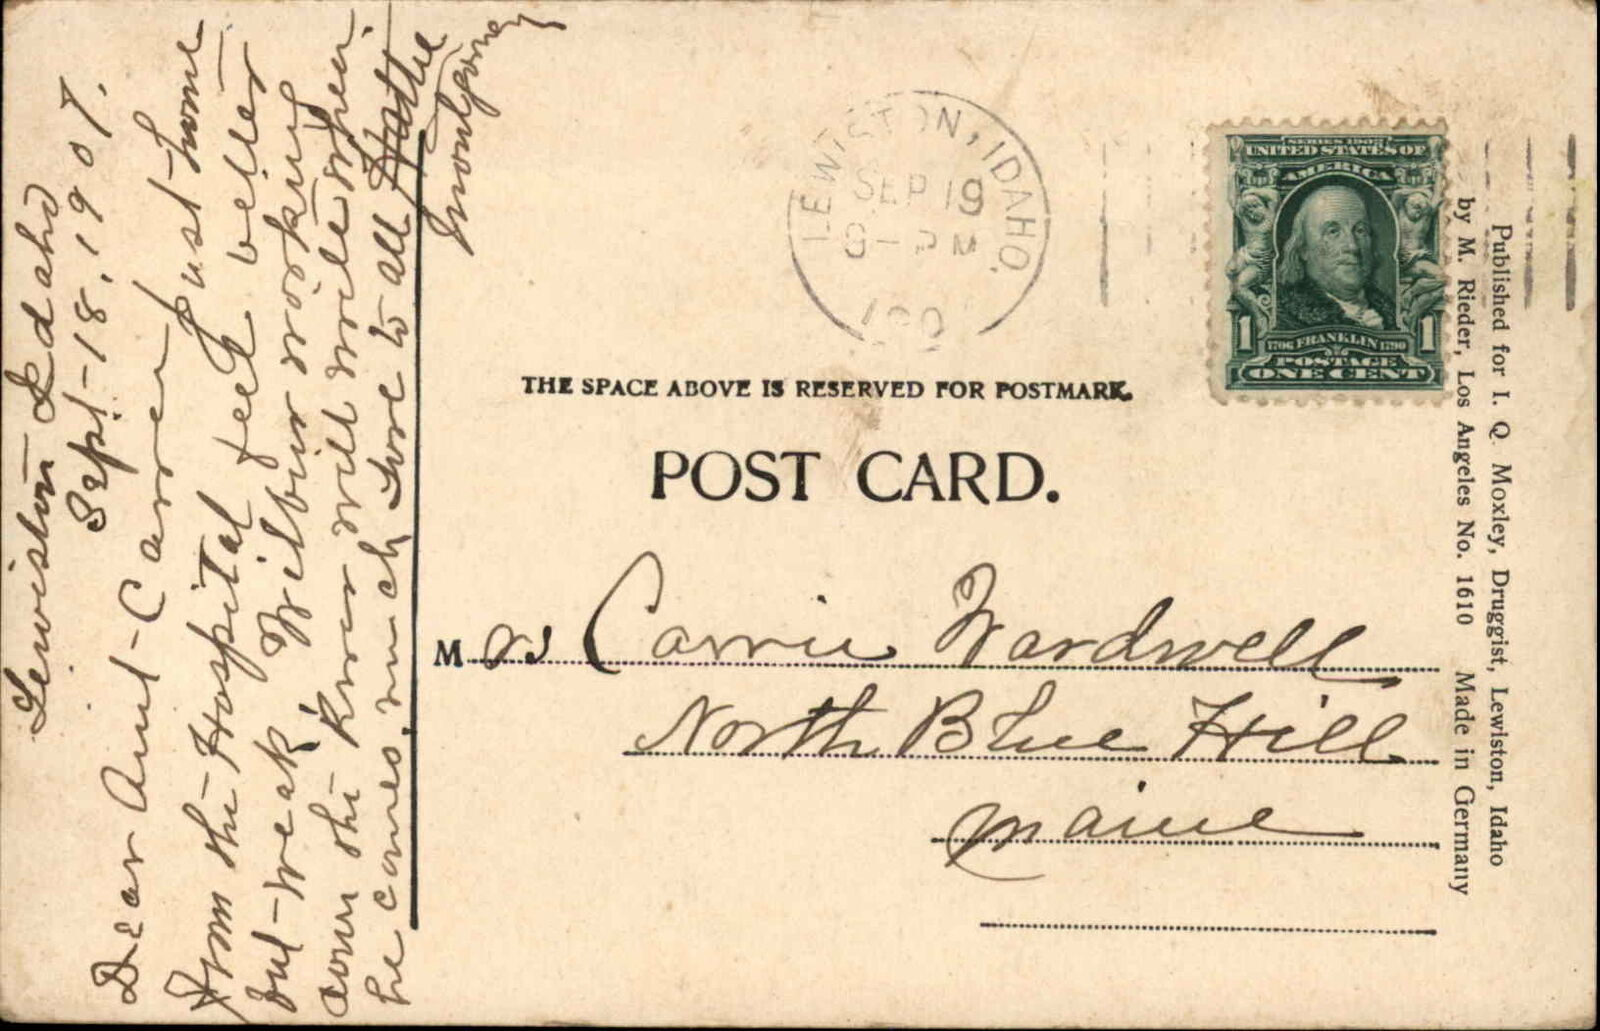 Lewiston Idaho
Sept-18, 1907.
Dear Aunt-Carrie
Just home
from the Hospital feel better
but-weak, Wilbur working
down the river will write when
he comes. much Love to all Hattie
Montgomery
LEWISTON, IDAHO.
SEP 19
8-PM
190
SERIES 1902
UNITED STATES OF
AMERICA
1 1
1706 FRANKLIN 1790
POSTAGE
ONE CENT
THE SPACE ABOVE IS RESERVED FOR POSTMARK.
POST CARD.
Mrs Carrie Wardwell
North Blue Hill
Maine
Published for I. Q. Moxley, Druggist, Lewiston, Idaho
by M. Rieder, Los Angeles No. 1610 Made in Germany